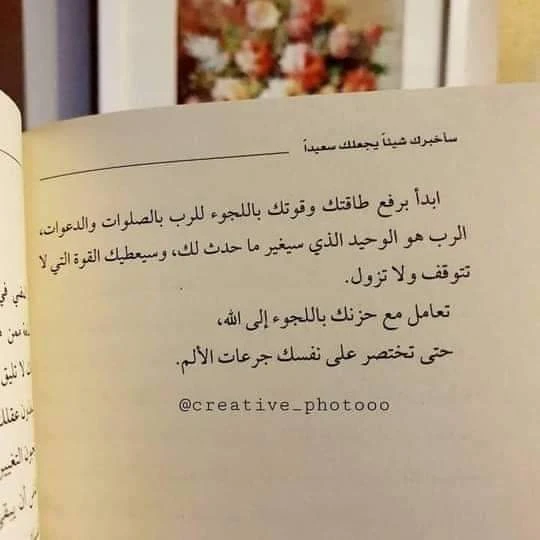 سأخبرك شيئاً يجعلك سعيداً
ابدأ برفع طاقتك وقوتك باللجوء للرب بالصلوات والدعوات،
الرب هو الوحيد الذي سيغير ما حدث لك، وسيعطيك القوة التي لا
تتوقف ولا تزول.
تعامل مع حزنك باللجوء إلى الله،
حتى تختصر على نفسك جرعات الألم.
@creative_photooo
في
ممن
لا تليق
عقلك
التغيير
أن يبقى